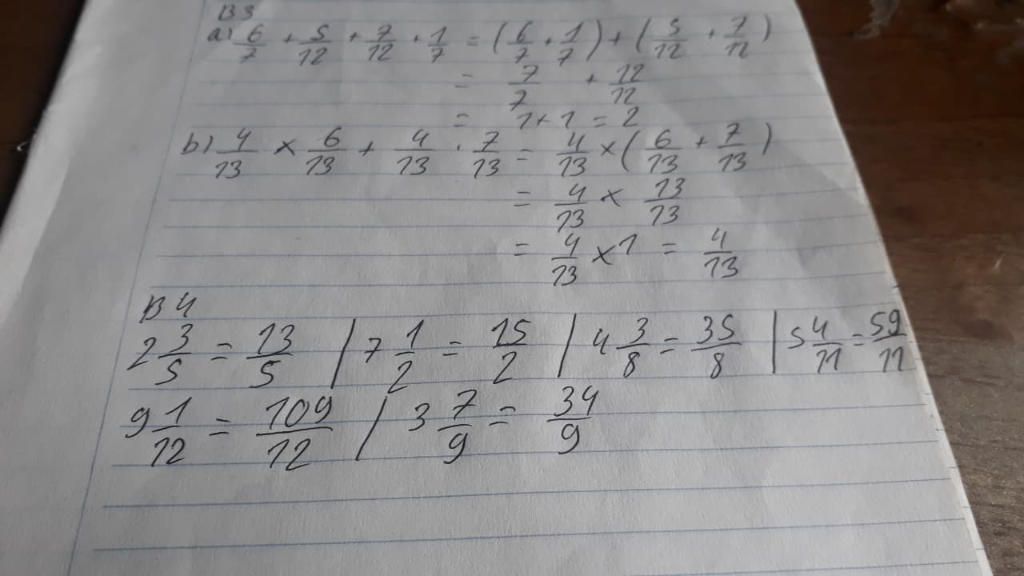 B3
a) 6/7 + 5/12 + 7/12 + 1/7 = (6/7 + 1/7) + (5/12 + 7/12)
= 7/7 + 12/12
= 1 + 1 = 2
b) 4/13 × 6/13 + 4/13 . 7/13 = 4/13 × (6/13 + 7/13)
= 4/13 × 13/13
= 4/13 × 1 = 4/13
B4
2 3/5 = 13/5 | 7 1/2 = 15/2 | 4 3/8 = 35/8 | 5 4/11 = 59/11
9 1/12 = 109/12 | 3 7/9 = 34/9